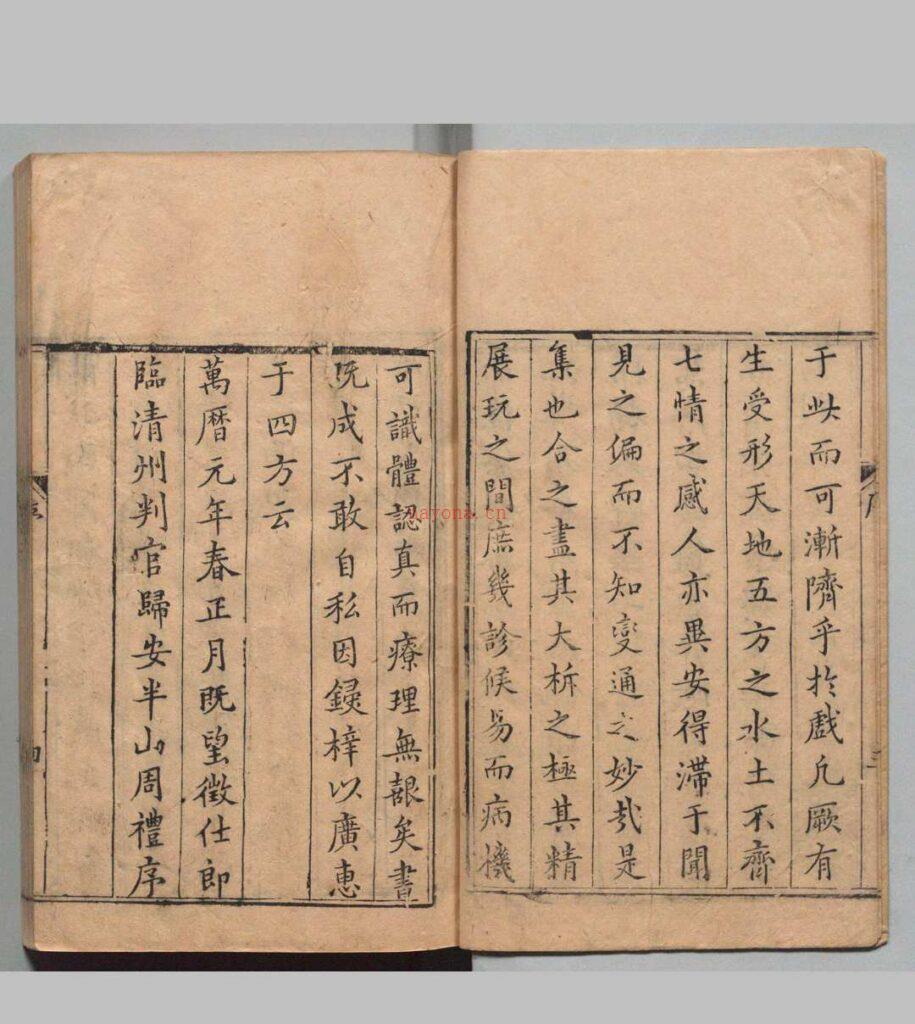 于此而可漸隮乎於戲凡厥有
生受形天地五方之水土不齊
七情之感人亦異安得滯于聞
見之偏而不知變通之妙哉是
集也合之盡其大析之極其精
展玩之間庶幾診候易而病機
可識體認真而療理無難矣書
既成不敢自私因鋟梓以廣惠
于四方云
萬曆元年春正月既望徵仕郎
臨清州判官歸安半山周禮序
序
三
四
yayona.cn